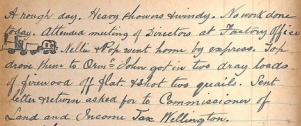 A rough day. Heavy showers & windy. No work done
today. Attended meeting of Directors at Factory office
Nell & Pop went home by express. Top
drove them to Orms. John got in two dray loads
of firewood off flat & shot two quails. Sent
letter & return asked for to Commissioner of
Land and Income Tax Wellington.